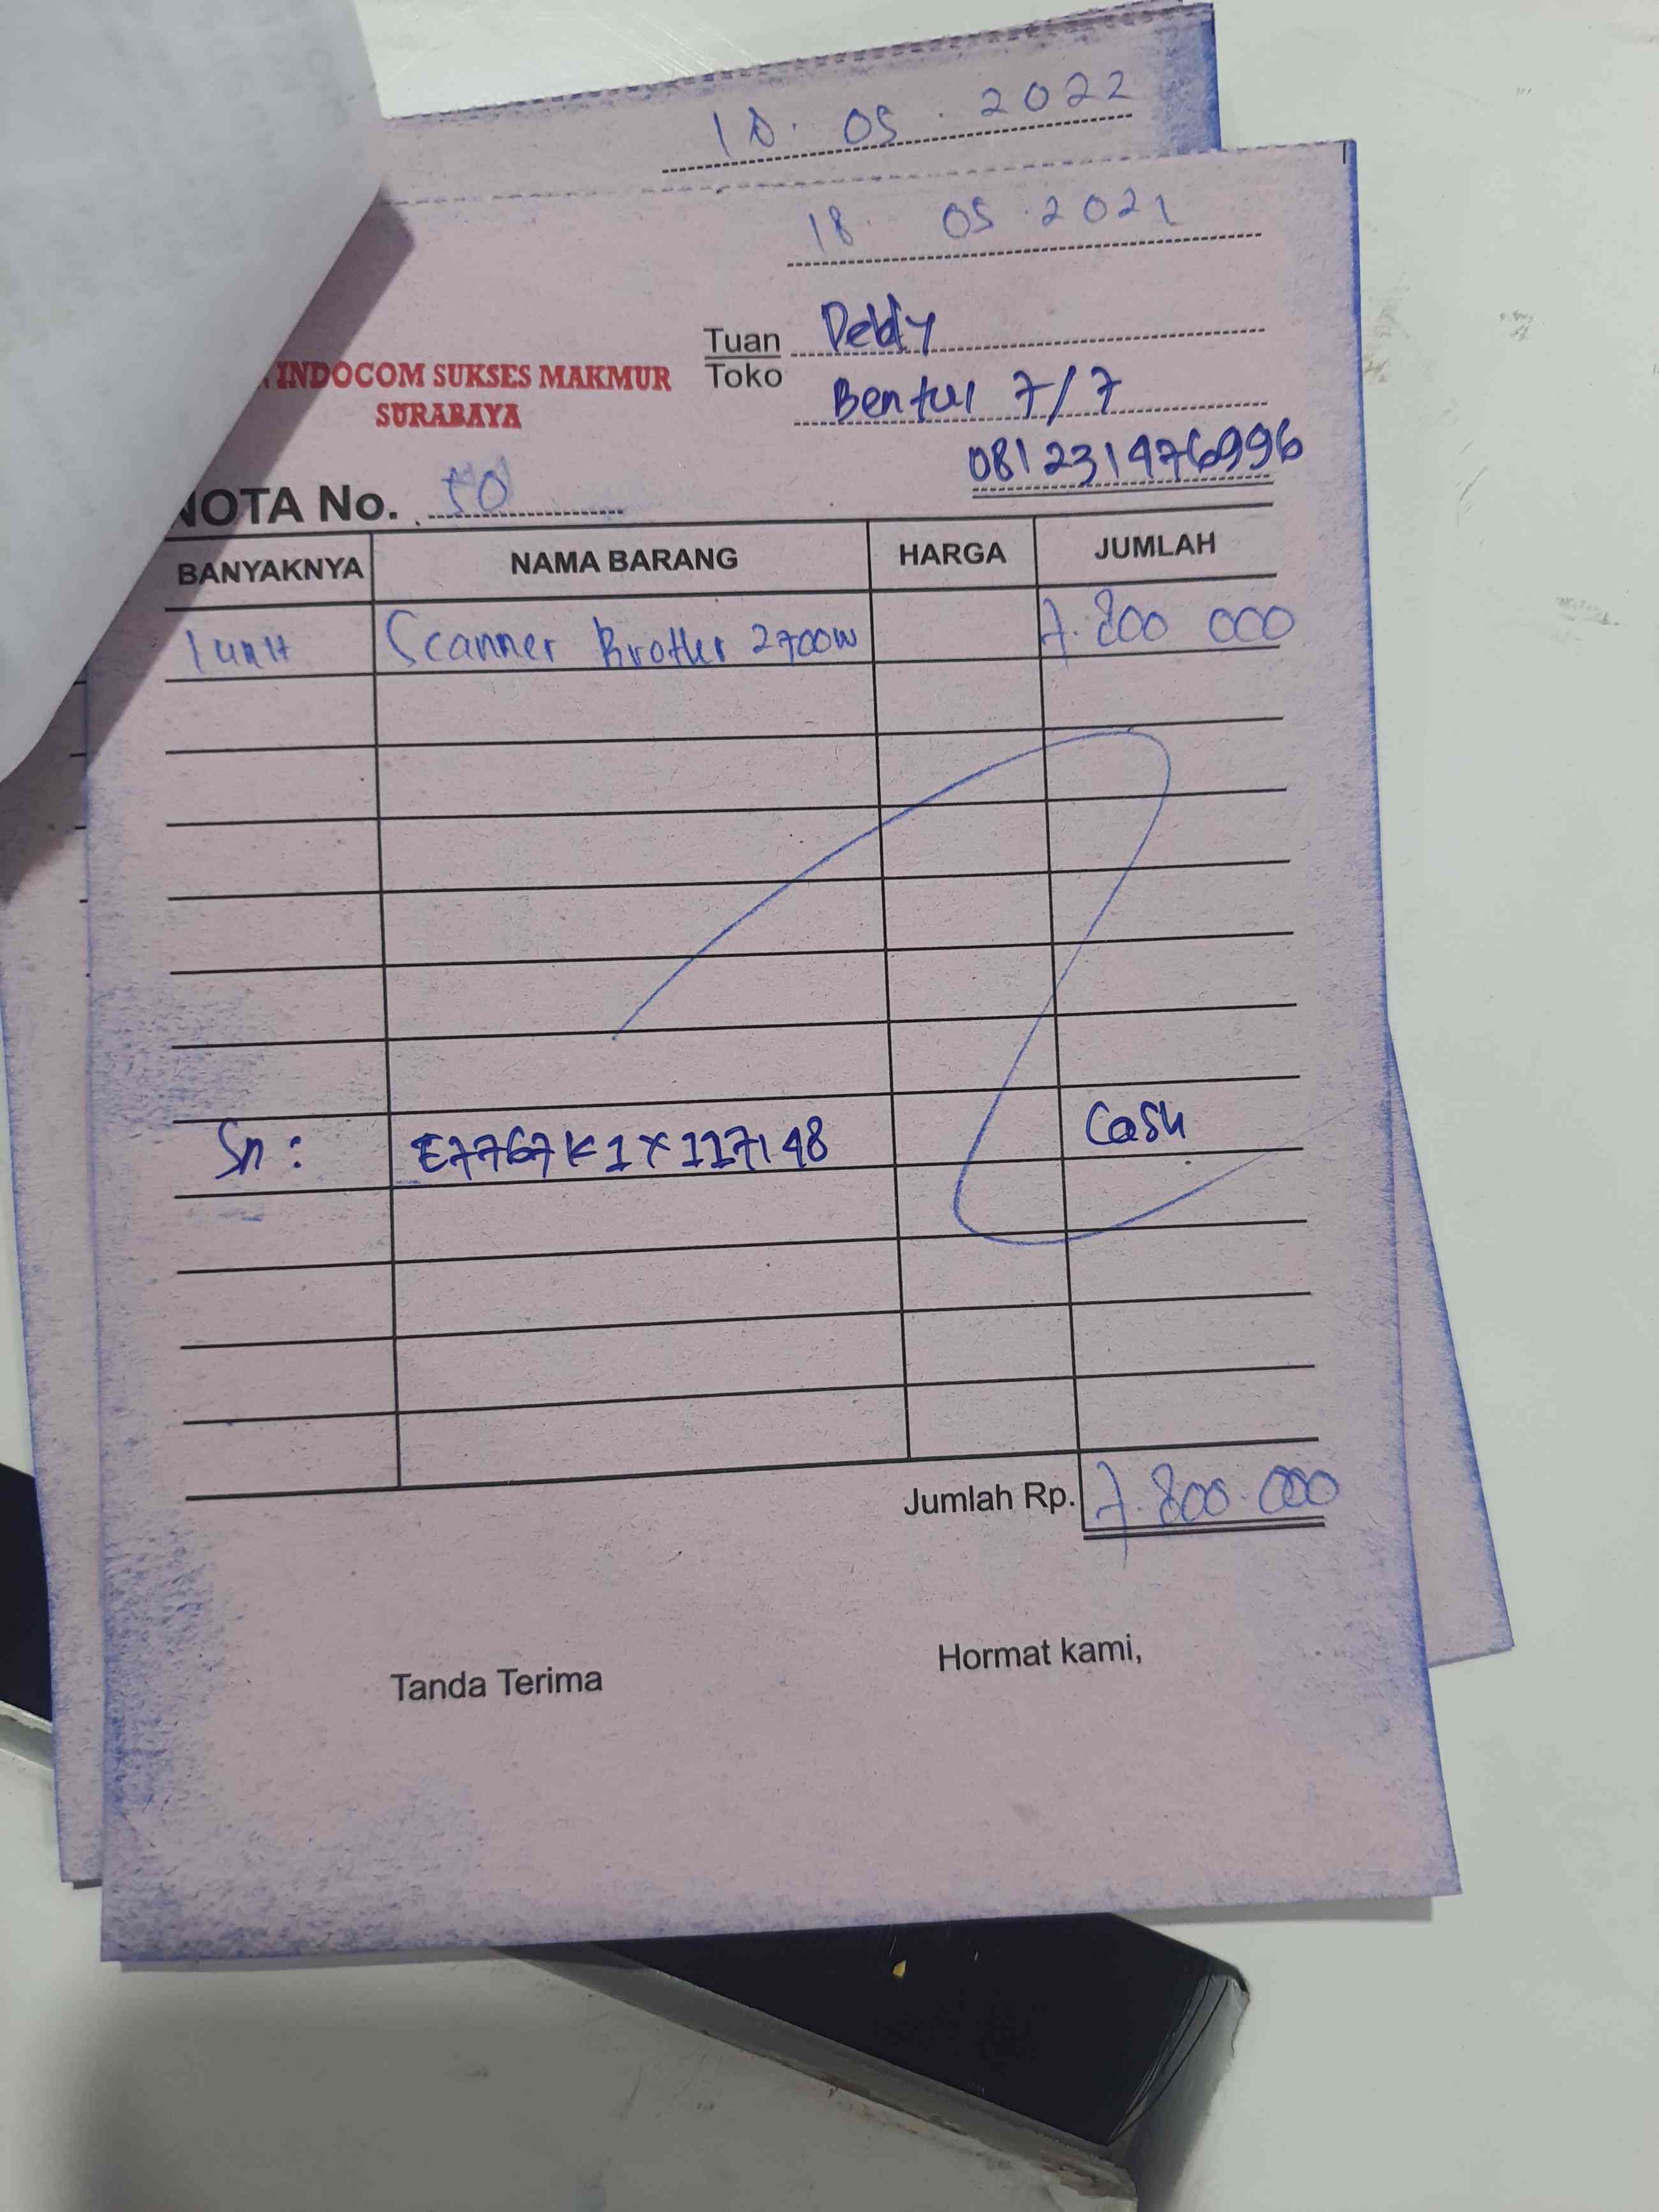 18. 05. 2022
18. 05. 2021
Tuan Deddy
INDOCOM SUKSES MAKMUR Toko
SURABAYA
Bentul 7/7
081231476996
NOTA No. 50
BANYAKNYA NAMA BARANG HARGA JUMLAH
1 unit Scanner Brother 2700W 7.800 000
Sn : E77671K1X117148 Cash
Jumlah Rp. 7.800.000
Tanda Terima Hormat kami,